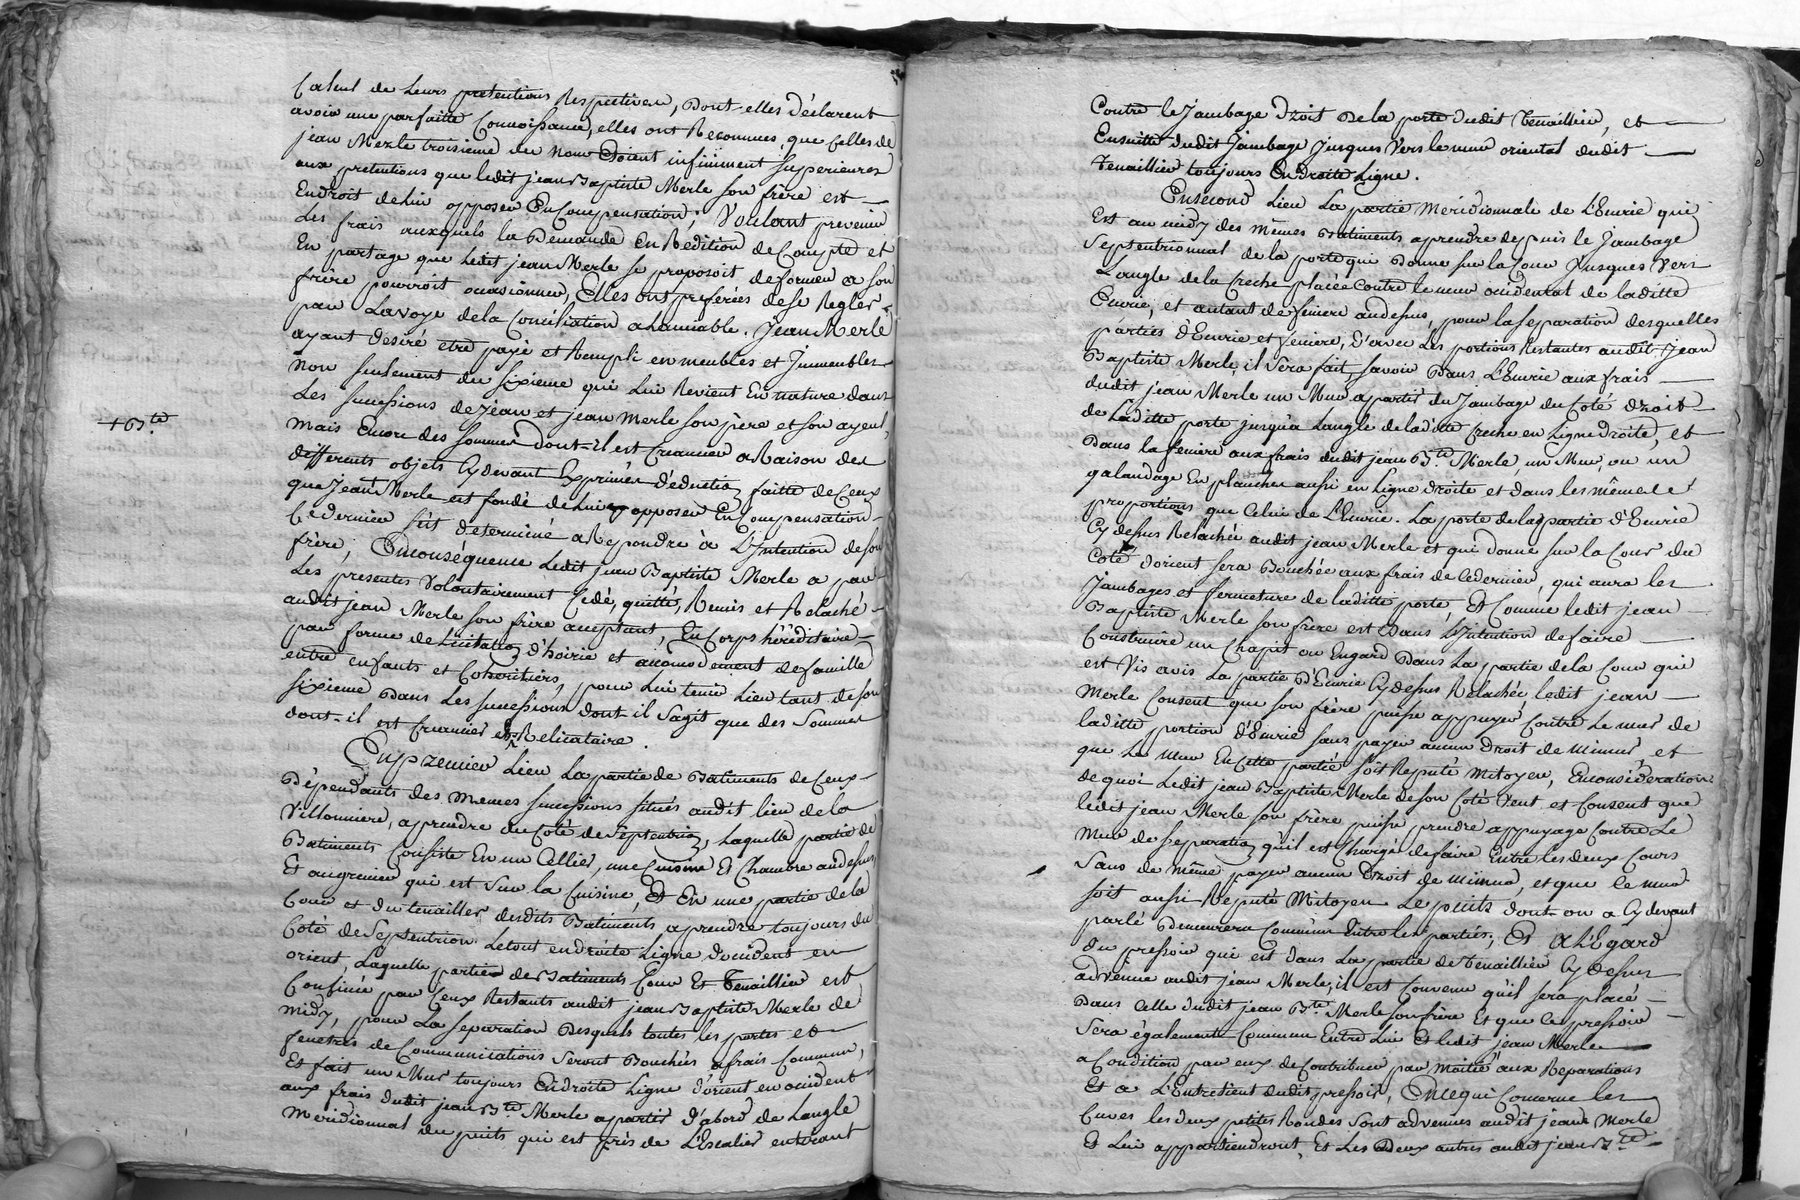 Calcul de Leurs pretentions Respectives, Dont elles déclarent
avoir une parfaitte Connoissance, elles ont Reconnues, que Celles de
jean Merle troisieme du Nom Soient infiniment Superieures
aux pretentions que ledit jean Baptiste Merle Son frère est
Endroit de Lui opposer En Compensation; Voulant prevenir
Les frais auxquels la Demande En Reédition de Compte et
En partage que Ledit jean Merle se proposoit de former a son
frère pourroit occasionner, Elles ont preferées de se Regler
par La voye de la Conciliation a Lamiable. Jean Merle
ayant desiré etre payé et Rempli en meubles et Immeubles
Non seulement du sixieme qui Lui Revient En nature dans
Les successions de jean et jean Merle son père et son ayeul,
mais Encore des sommes dont-il est Creancier a Raison des
differents objets Cy devant Exprimés d'éduction faitte de Ceux
+ Bte
que jean + Merle est fondé de Lui opposer En Compensation
Ce dernier s'est determiné a Repondre à L'Intention de son
frère, Enconséquence Ledit jean Baptiste Merle a par
Les presentes Volontairement Cedé, quitté, Remis et Relaché
audit jean Merle son frère acceptant, En Corps héréditaire
par forme de Licitation d'hoirie et accomodement de famille
entre enfants et Coheritiers, pour Lui tenir Lieu tant de son
sixieme Dans Les successions dont-il Sagit que des Sommes
dont-il est Creancier et Relicataire.
En premier Lieu La partie de Batiments de Ceux
Dépendants des mêmes successions situés audit lieu de la
Villonniere, aprendre du Coté de Septentrion, Laquelle partie de
Batiments Consiste En un Cellier, une Cuisine Et Chambre audessus
Et augrenier qui est sur la Cuisine, Et En une partie de la
Cour et du tenailler desdits Batiments aprendre toujours du
Coté de Septentrion Letout en droite Ligne d'occident en
orient, Laquelle partie de Batiments Cour Et Tenaillier est
Confinée par Ceux Restants audit jean Baptiste Merle de
midy, pour La separation Desquels toutes les portes et
fenetres de Communications Seront Bouchées afrais Commun,
Et fait un Mur toujours Endroite Ligne d'orient en occident
aux frais dudit jean Bte Merle apartir d'abord de Langle
Meridionnal du puits qui est près de L'Escalier entirant
Contre le Jambage Droit de la porte dudit Tenaillier, et
Ensuitte dudit Jambage Jusques Vers le mur oriental dudit
Tenaillier toujours En droite Ligne.
Ensecond Lieu La partie Méridionnale de L'Ecurie qui
Est au midy des mêmes Batiments aprendre depuis le Jambage
Septentrionnal de la porte qui Donne sur la Cour Jusques Vers
L'angle de la Creche placée Contre le mur occidental de laditte
Ecurie, et autant de feniere audessus, pour la separation desquelles
parties d'Ecurie et feniere, d'avec Les portions Restantes audit Jean
Baptiste Merle, il Sera fait, savoir Dans L'Ecurie aux frais
dudit jean Merle un Mur apartir du Jambage du Coté droit
de Laditte porte jusqu'à Langle de laditte Creche en Ligne droite, et
Dans la feniere aux frais dudit jean Bte Merle, un Mur, ou un
galandage En plancher aussi en Ligne droite et dans les mêmes
proportions que Celui de L'Ecurie. La porte de la partie d'Ecurie
Cy dessus Relachée audit jean Merle et qui donne sur la Cour du
Coté dorient sera Bouchée aux frais de Ce dernier, qui aura les
Jambages et fermeture de laditte porte, Et Comme ledit jean
Baptiste Merle son frère est Dans L'Intention de faire
Construire un Chapit ou Engard Dans La partie de la Cour qui
est Vis avis La partie d'Ecurie Cy dessus Relachée ledit jean
Merle Consent que son frère puisse appuyer Contre Le mur de
laditte portion d'Ecurie sans payer aucun droit de mimur, et
que Le mur En Cette partie soit Reputé mitoyen, Enconsidération
de quoi Ledit jean Baptiste Merle de son Coté Veut et Consent que
ledit jean Merle son frère puisse prendre appuyage Contre Le
mur de Separation qu'il est Chargé de faire Entre les deux Cours
Sans de même payer aucun Droit de mimur, et que le mur
soit aussi Reputé Mitoyen Le puits dont-on a Cy devant
parlé Demeurera Commun Entre les parties; Et A L'Egard
du pressoir qui est dans La partie de tenaillier Cy dessus
advenue audit jean Merle, il est Convenu qu'il sera placé
Dans Celle dudit jean Bte Merle son frère Et que Ce pressoir
Sera également Commun Entre Lui Et ledit jean Merle
a Condition par eux de Contribuer par Moitié aux Reparations
Et a L'Entretient dudit pressoir, En Ce qui Concerne les
Cuves les deux petites Rondes Sont advenues audit jean Merle
Et Lui appartiendront, Et Les Deux autres audit jean Bte